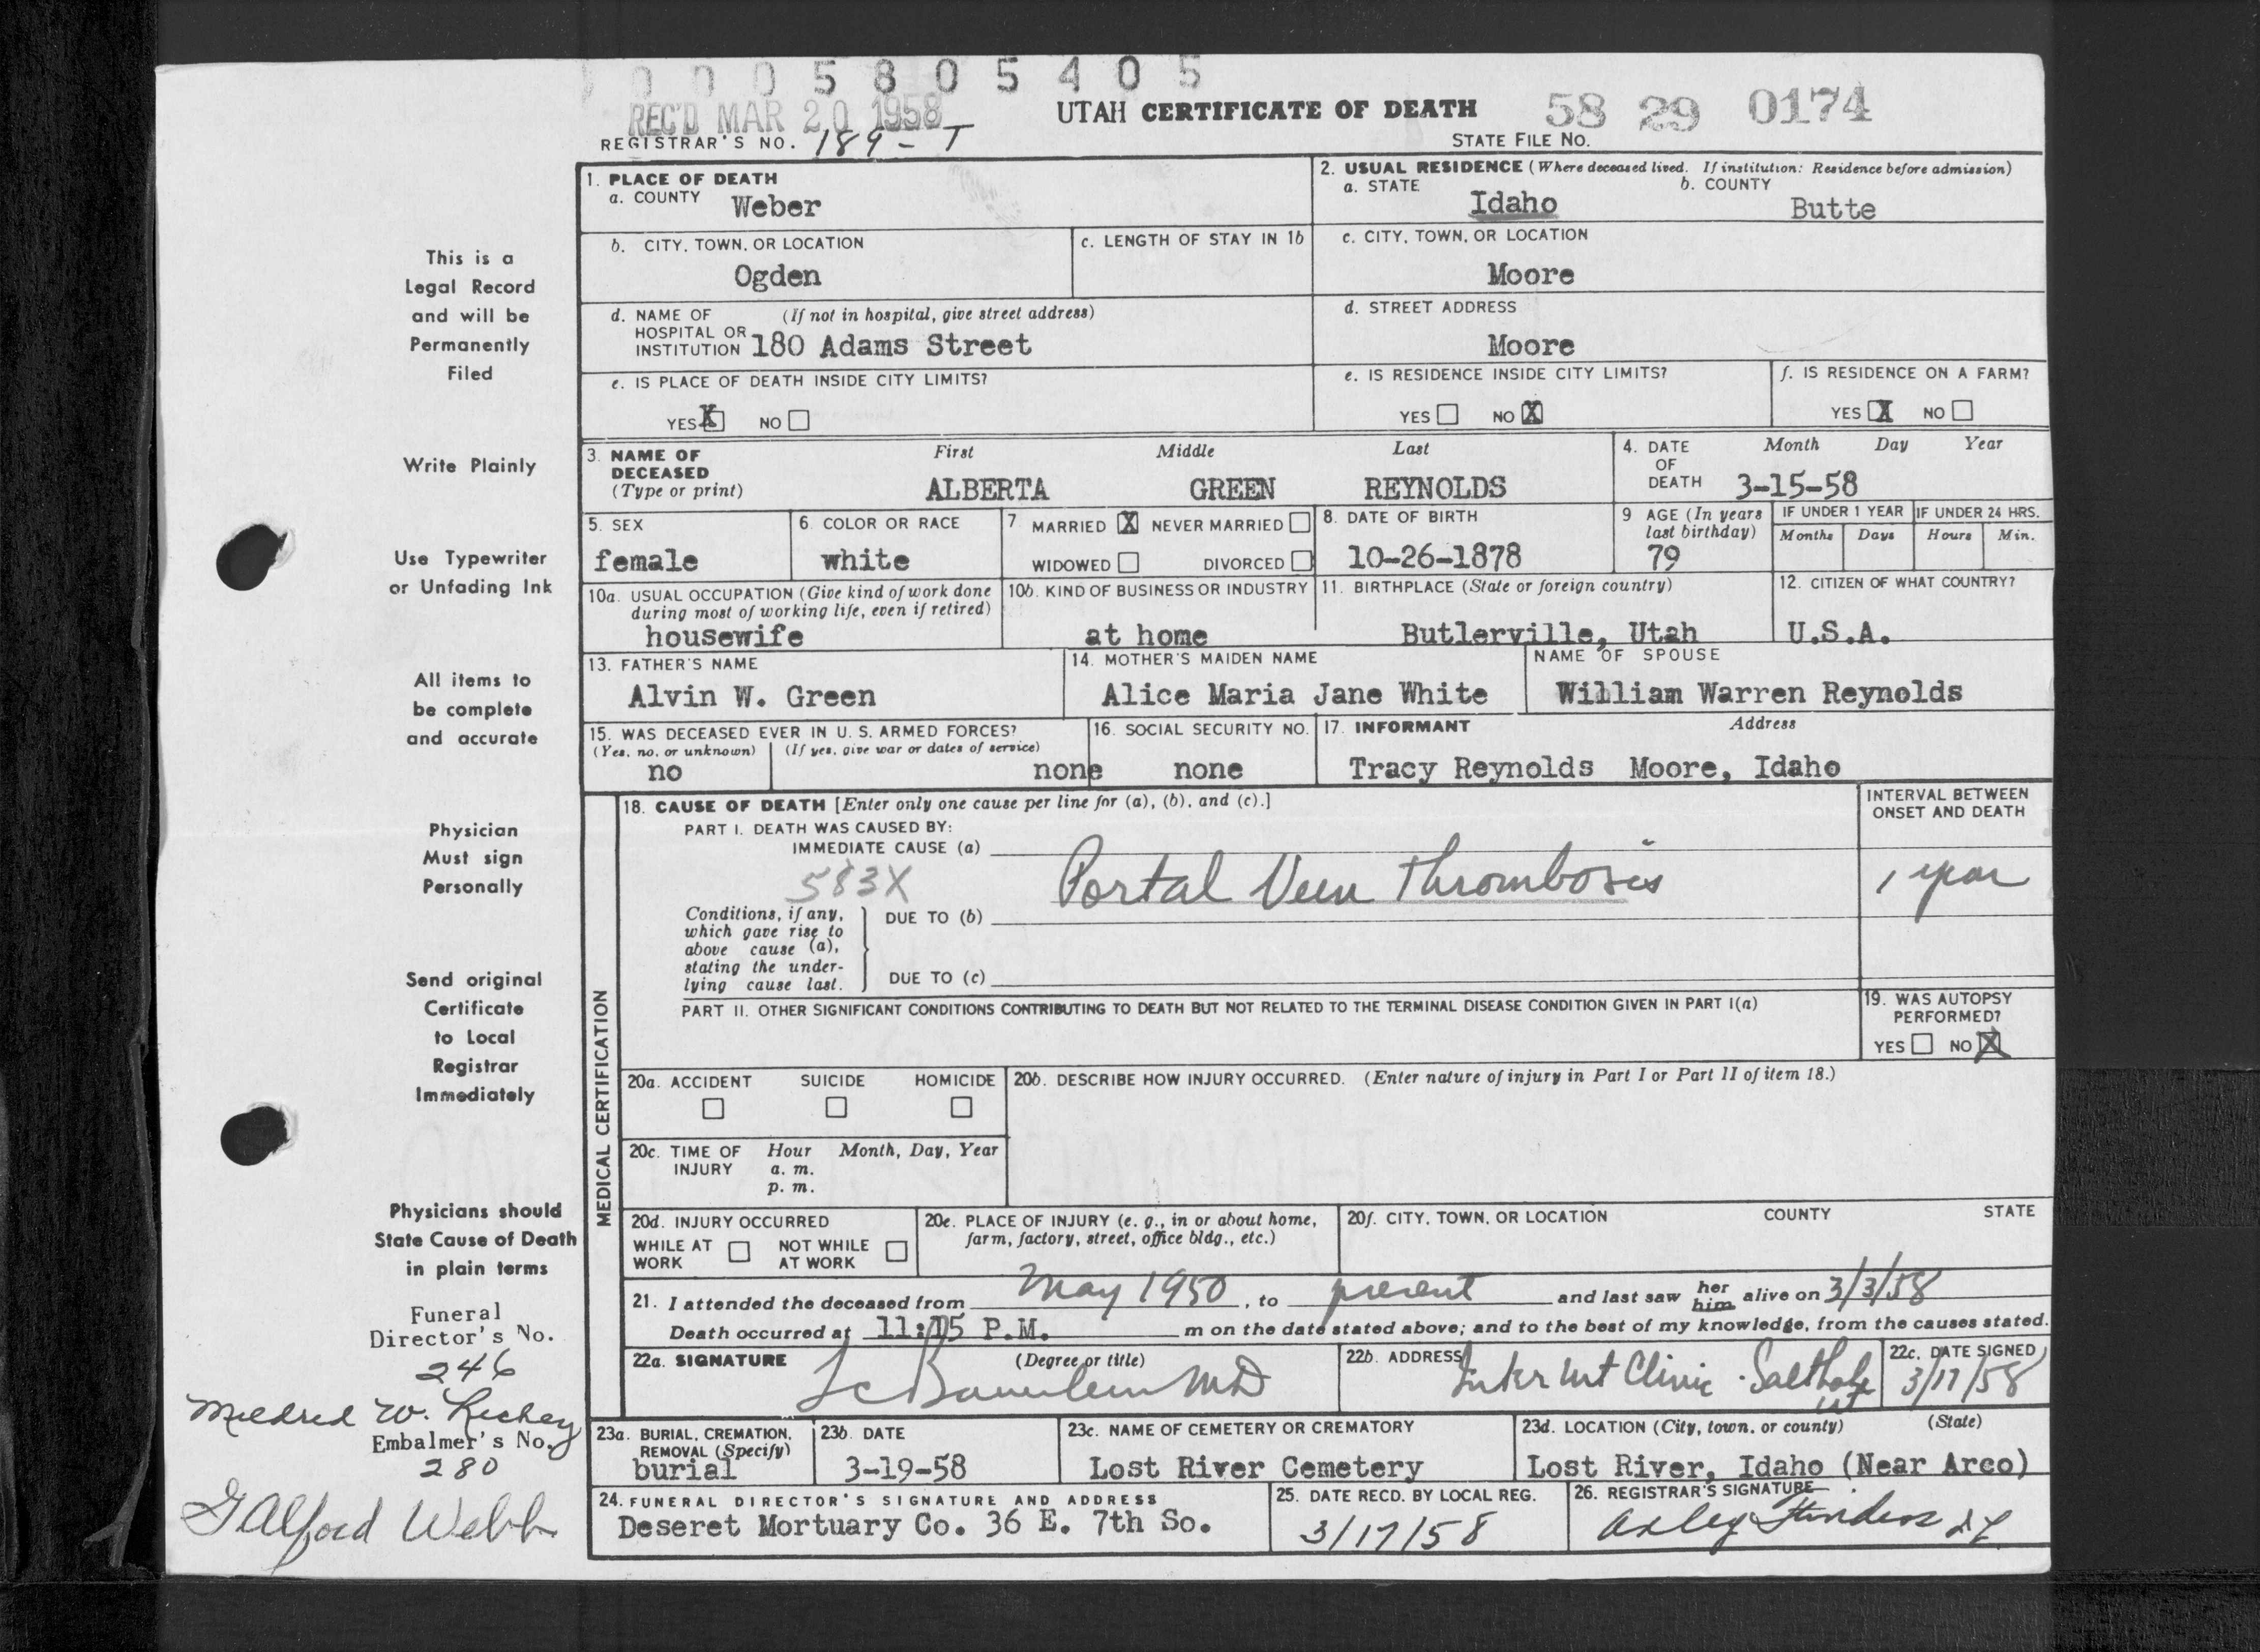 0 0 0 5 8 0 5 4 0 5
REC'D MAR 20 1958
UTAH CERTIFICATE OF DEATH 58 29 0174
REGISTRAR'S NO. 189 - T STATE FILE NO.
1. PLACE OF DEATH
a. COUNTY Weber
2. USUAL RESIDENCE (Where deceased lived. If institution: Residence before admission)
a. STATE Idaho b. COUNTY Butte
b. CITY, TOWN, OR LOCATION Ogden
c. LENGTH OF STAY IN 1b
c. CITY, TOWN, OR LOCATION Moore
d. NAME OF HOSPITAL OR INSTITUTION (If not in hospital, give street address)
180 Adams Street
d. STREET ADDRESS Moore
e. IS PLACE OF DEATH INSIDE CITY LIMITS?
YES X NO
e. IS RESIDENCE INSIDE CITY LIMITS?
YES NO X
f. IS RESIDENCE ON A FARM?
YES X NO
3. NAME OF DECEASED (Type or print)
First Middle Last
ALBERTA GREEN REYNOLDS
4. DATE OF DEATH Month Day Year
3-15-58
5. SEX female
6. COLOR OR RACE white
7. MARRIED X NEVER MARRIED
WIDOWED DIVORCED
8. DATE OF BIRTH 10-26-1878
9 AGE (In years last birthday) 79
IF UNDER 1 YEAR Months Days
IF UNDER 24 HRS. Hours Min.
10a. USUAL OCCUPATION (Give kind of work done during most of working life, even if retired)
housewife
10b. KIND OF BUSINESS OR INDUSTRY
at home
11. BIRTHPLACE (State or foreign country)
Butlerville, Utah
12. CITIZEN OF WHAT COUNTRY?
U.S.A.
13. FATHER'S NAME
Alvin W. Green
14. MOTHER'S MAIDEN NAME
Alice Maria Jane White
NAME OF SPOUSE
William Warren Reynolds
15. WAS DECEASED EVER IN U. S. ARMED FORCES?
(Yes, no, or unknown) (If yes, give war or dates of service)
no none
16. SOCIAL SECURITY NO.
none
17. INFORMANT Address
Tracy Reynolds Moore, Idaho
MEDICAL CERTIFICATION
18. CAUSE OF DEATH [Enter only one cause per line for (a), (b), and (c).]
INTERVAL BETWEEN ONSET AND DEATH
PART I. DEATH WAS CAUSED BY:
IMMEDIATE CAUSE (a)
583X Portal Vein Thrombosis 1 year
Conditions, if any, which gave rise to above cause (a), stating the underlying cause last.
DUE TO (b)
DUE TO (c)
PART II. OTHER SIGNIFICANT CONDITIONS CONTRIBUTING TO DEATH BUT NOT RELATED TO THE TERMINAL DISEASE CONDITION GIVEN IN PART I(a)
19. WAS AUTOPSY PERFORMED?
YES NO X
20a. ACCIDENT SUICIDE HOMICIDE
20b. DESCRIBE HOW INJURY OCCURRED. (Enter nature of injury in Part I or Part II of item 18.)
20c. TIME OF INJURY Hour Month, Day, Year
a. m.
p. m.
20d. INJURY OCCURRED
WHILE AT WORK NOT WHILE AT WORK
20e. PLACE OF INJURY (e. g., in or about home, farm, factory, street, office bldg., etc.)
20f. CITY, TOWN, OR LOCATION COUNTY STATE
21. I attended the deceased from May 1950, to present and last saw her him alive on 3/3/58
Death occurred at 11:15 P.M. m on the date stated above; and to the best of my knowledge, from the causes stated.
22a. SIGNATURE (Degree or title)
MD
22b. ADDRESS
Inter Mt Clinic - Salt Lake Ut
22c. DATE SIGNED
3/17/58
23a. BURIAL, CREMATION, REMOVAL (Specify)
burial
23b. DATE
3-19-58
23c. NAME OF CEMETERY OR CREMATORY
Lost River Cemetery
23d. LOCATION (City, town, or county) (State)
Lost River, Idaho (Near Arco)
24. FUNERAL DIRECTOR'S SIGNATURE AND ADDRESS
Deseret Mortuary Co. 36 E. 7th So.
25. DATE RECD. BY LOCAL REG.
3/17/58
26. REGISTRAR'S SIGNATURE
This is a
Legal Record
and will be
Permanently
Filed
Write Plainly
Use Typewriter
or Unfading Ink
All items to
be complete
and accurate
Physician
Must sign
Personally
Send original
Certificate
to Local
Registrar
Immediately
Physicians should
State Cause of Death
in plain terms
Funeral
Director's No.
246
Mildred W. Richey
Embalmer's No.
280
G Alford Webb